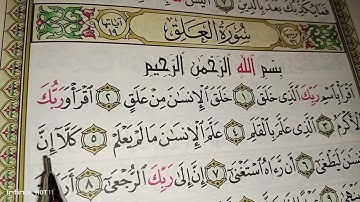 فما يكذبك بعد بالدين
آياتها ١٩
سُورَةُ الْعَلَقِ
بِسْمِ اللَّهِ الرَّحْمَٰنِ الرَّحِيمِ
اقْرَأْ بِاسْمِ رَبِّكَ الَّذِي خَلَقَ ١ خَلَقَ الْإِنسَانَ مِنْ عَلَقٍ ٢ اقْرَأْ وَرَبُّكَ
الْأَكْرَمُ ٣ الَّذِي عَلَّمَ بِالْقَلَمِ ٤ عَلَّمَ الْإِنسَانَ مَا لَمْ يَعْلَمْ ٥ كَلَّا إِنَّ
الْإِنسَانَ لَيَطْغَىٰ ٦ أَن رَّءَاهُ اسْتَغْنَىٰ ٧ إِنَّ إِلَىٰ رَبِّكَ الرُّجْعَىٰ ٨
Infinix HOT 11